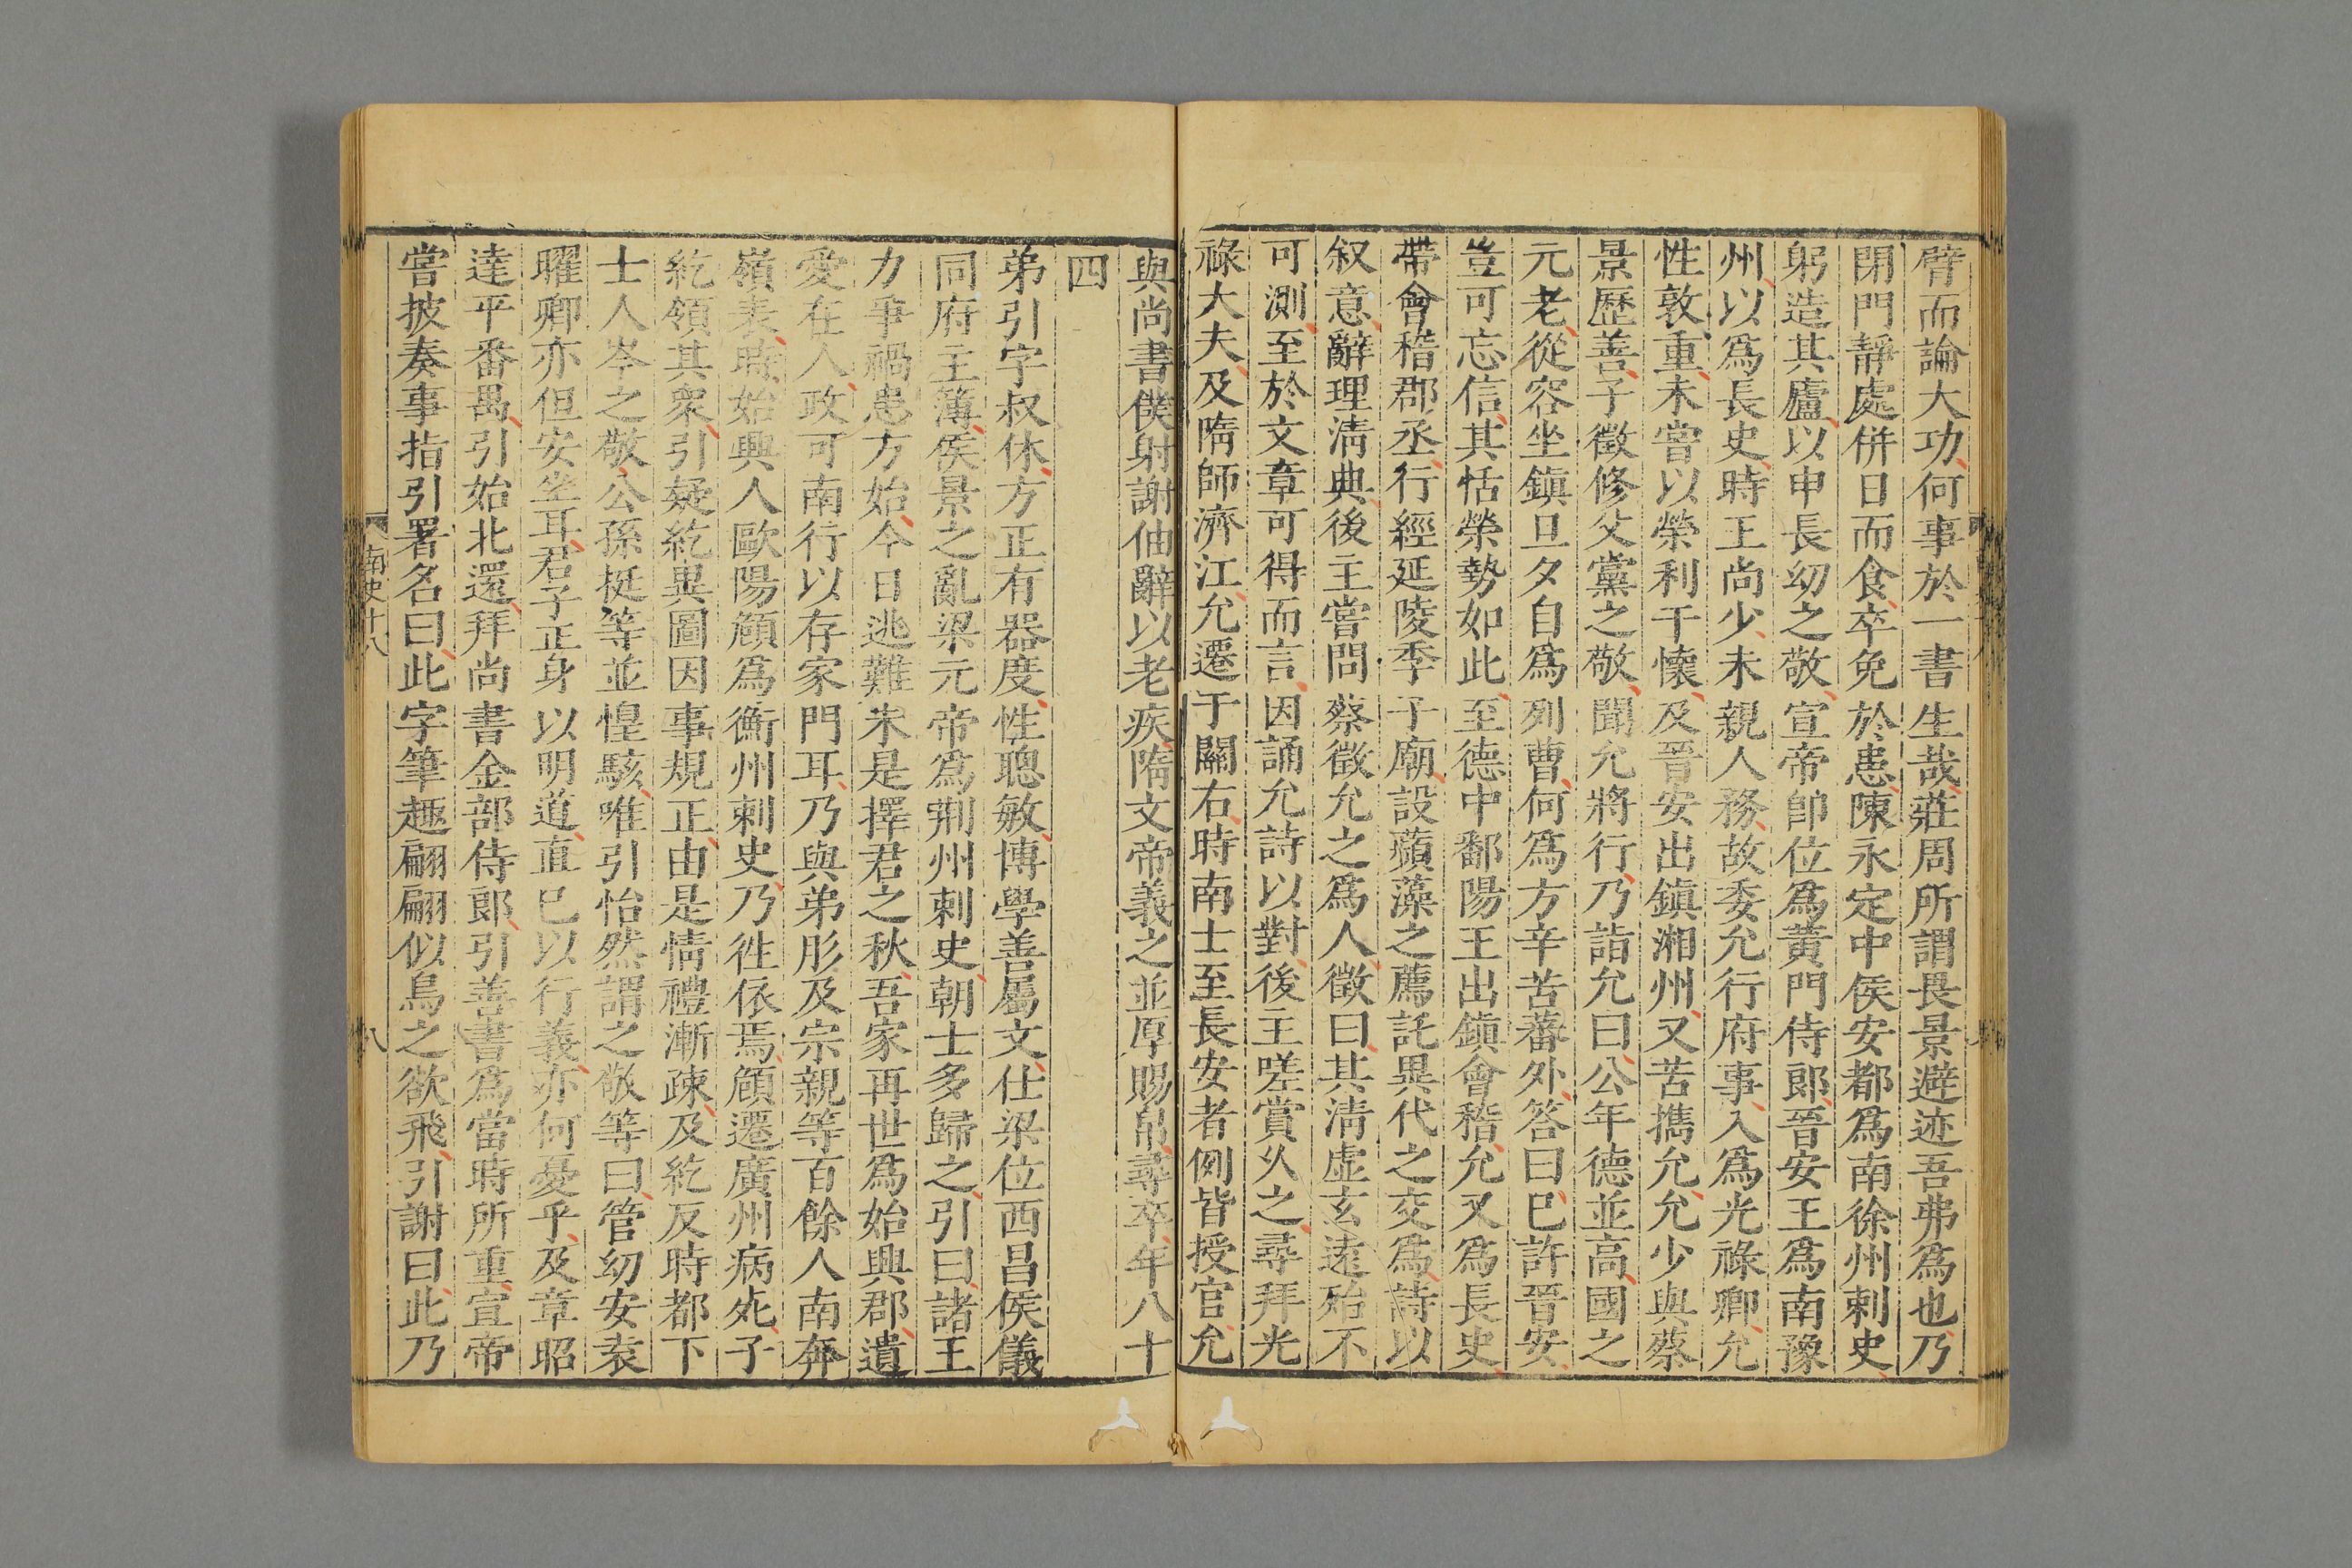 臂而論大功何事於一書生哉莊周所謂畏景避迹吾弗爲也乃
閉門靜處併日而食卒免於患陳永定中侯安都爲南徐州刺史
躬造其廬以申長幼之敬宣帝卽位爲黃門侍郎晉安王爲南豫
州以爲長史時王尚少未親人務故委允行府事入爲光祿卿允
性敦重未嘗以榮利干懷及晉安出鎮湘州又苦攜允允少與蔡
景歷善子徵修父黨之敬聞允將行乃詣允曰公年德並高國之
元老從容坐鎮旦夕自爲列曹何爲方辛苦蕃外答曰已許晉安
豈可忘信其恬榮勢如此至德中鄱陽王出鎮會稽允又爲長史
帶會稽郡丞行經延陵季子廟設蘋藻之薦託異代之交爲詩以
叙意辭理清典後主嘗問蔡徵允之爲人徵曰其清虛玄遠殆不
可測至於文章可得而言因誦允詩以對後主嗟賞久之尋拜光
祿大夫及隋師濟江允遷于關右時南士至長安者例皆授官允
與尚書僕射謝伷辭以老疾隋文帝義之並厚賜帛尋卒年八十
四
弟引字叔休方正有器度性聰敏博學善屬文仕梁位西昌侯儀
同府主簿侯景之亂梁元帝爲荆州刺史朝士多歸之引曰諸王
力爭禍患方始今日逃難未是擇君之秋吾家再世爲始興郡遺
愛在人政可南行以存家門耳乃與弟肜及宗親等百餘人南奔
嶺表時始興人歐陽頠爲衡州刺史乃往依焉頠遷廣州病死子
紇領其衆引疑紇異圖因事規正由是情禮漸疎及紇反時都下
士人岑之敬公孫挺等並惶駭唯引怡然謂之敬等曰管幼安袁
曜卿亦但安坐耳君子正身以明道直已以行義亦何憂乎及章昭
達平番禺引始北還拜尚書金部侍郎引善書爲當時所重宣帝
嘗披奏事指引署名曰此字筆趣翩翩似鳥之欲飛引謝曰此乃
南史十八
八